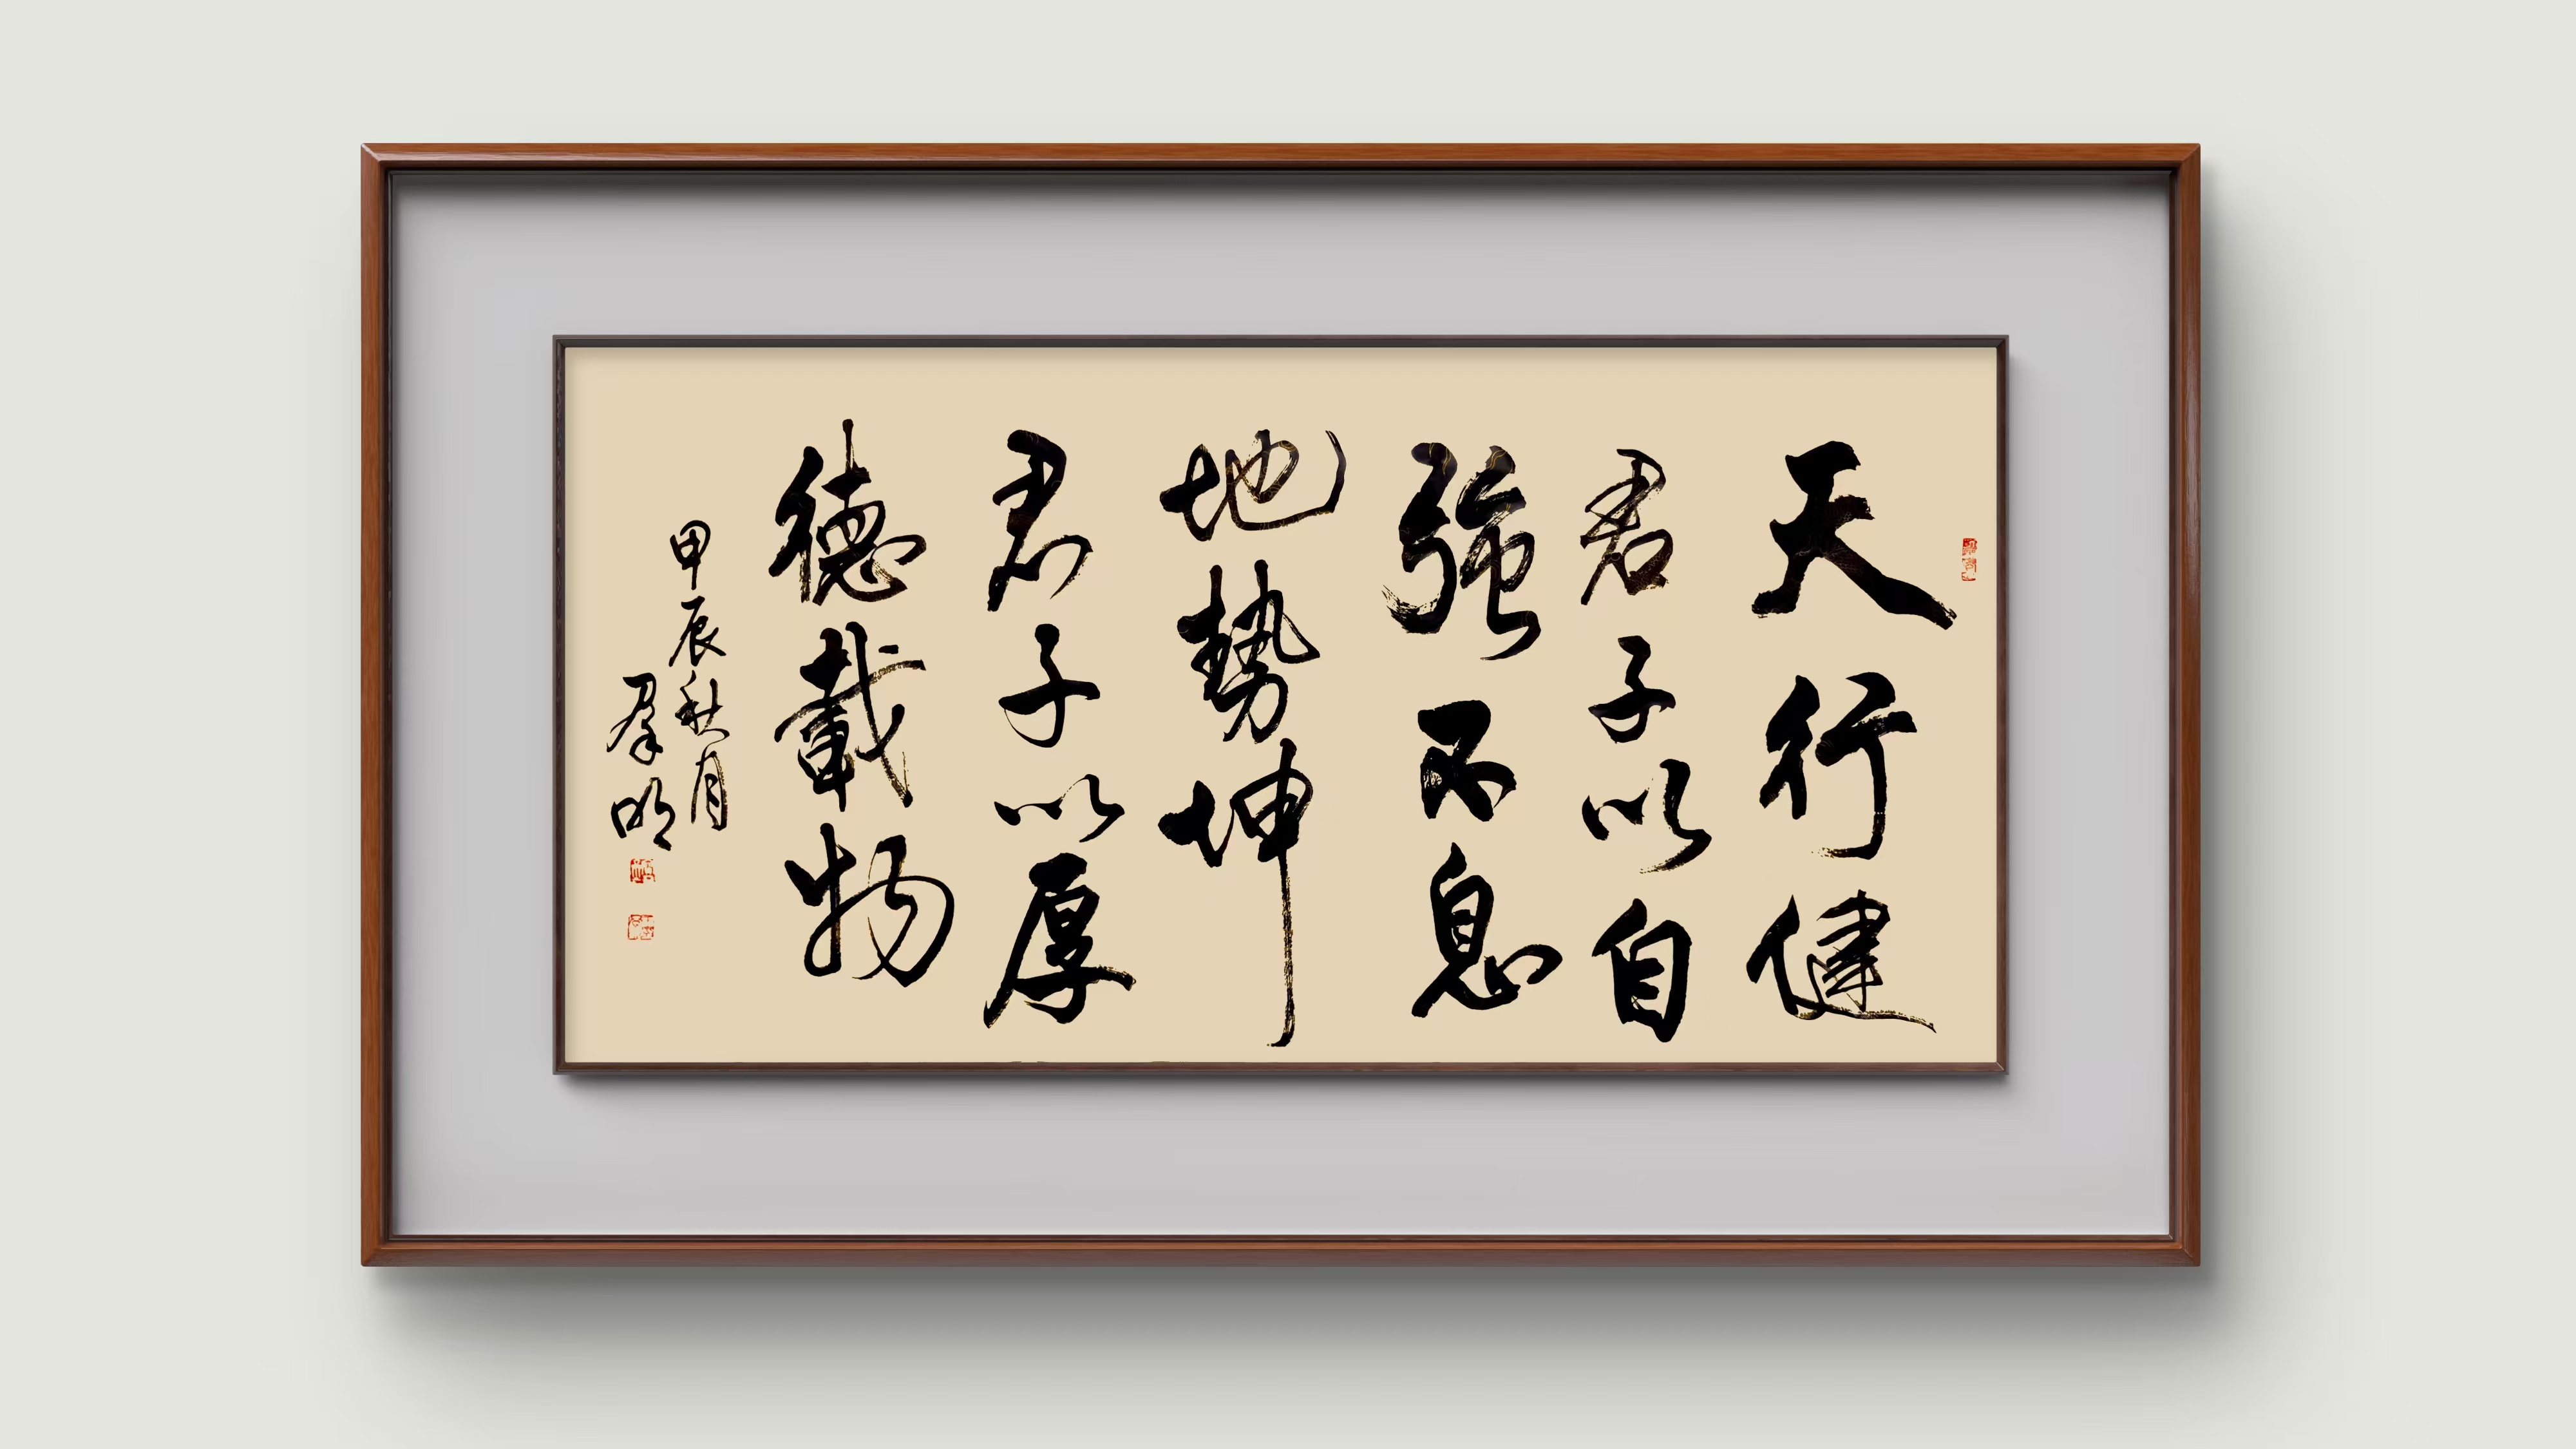 天行健
君子以自
強不息
地勢坤
君子以厚
德載物
甲辰秋月
羣明